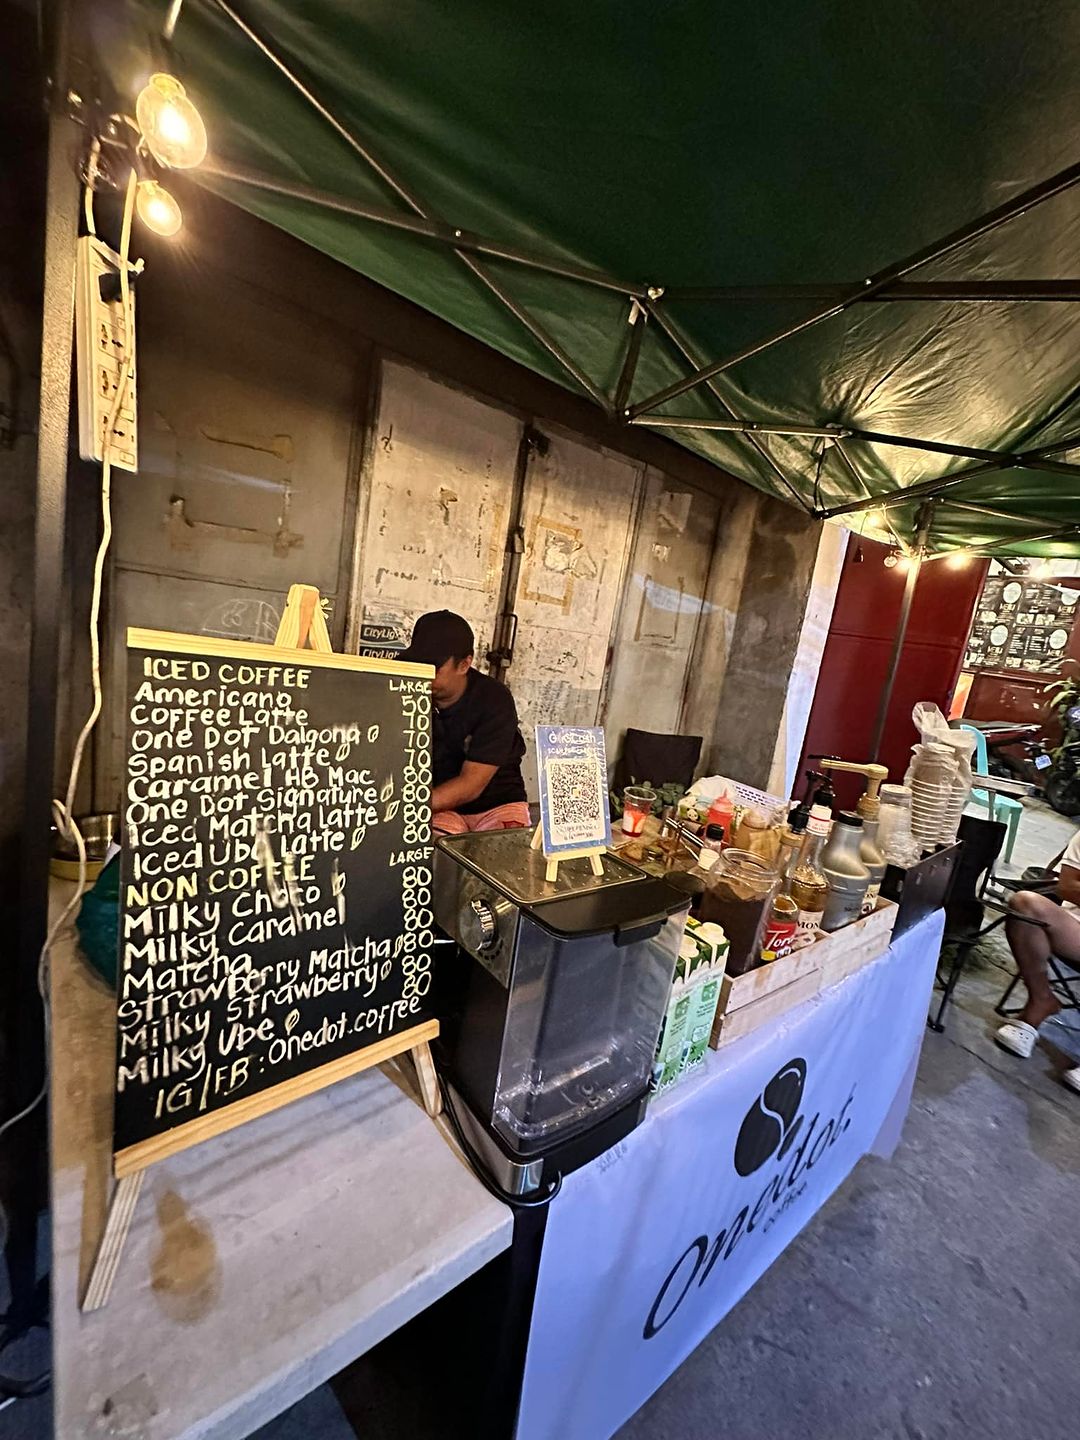 ICED COFFEE
LARGE
Americano 50
Coffee Latte 70
One Dot Dalgona 70
Spanish Latte 70
Caramel HB Mac 80
One Dot Signature 80
Iced Matcha Latte 80
Iced Ube Latte 80
NON COFFEE
LARGE
Milky Choco 80
Milky Caramel 80
Matcha 80
Strawberry Matcha 80
Milky Strawberry 80
Milky Ube 80
IG/FB: Onedot.coffee
CityLig
CityLig
Onedot.
coffee